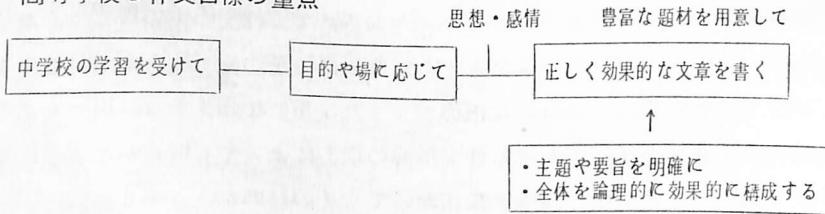 思想・感情
豊富な題材を用意して
中学校の学習を受けて
目的や場に応じて
正しく効果的な文章を書く
・主題や要旨を明確に
・全体を論理的に効果的に構成する